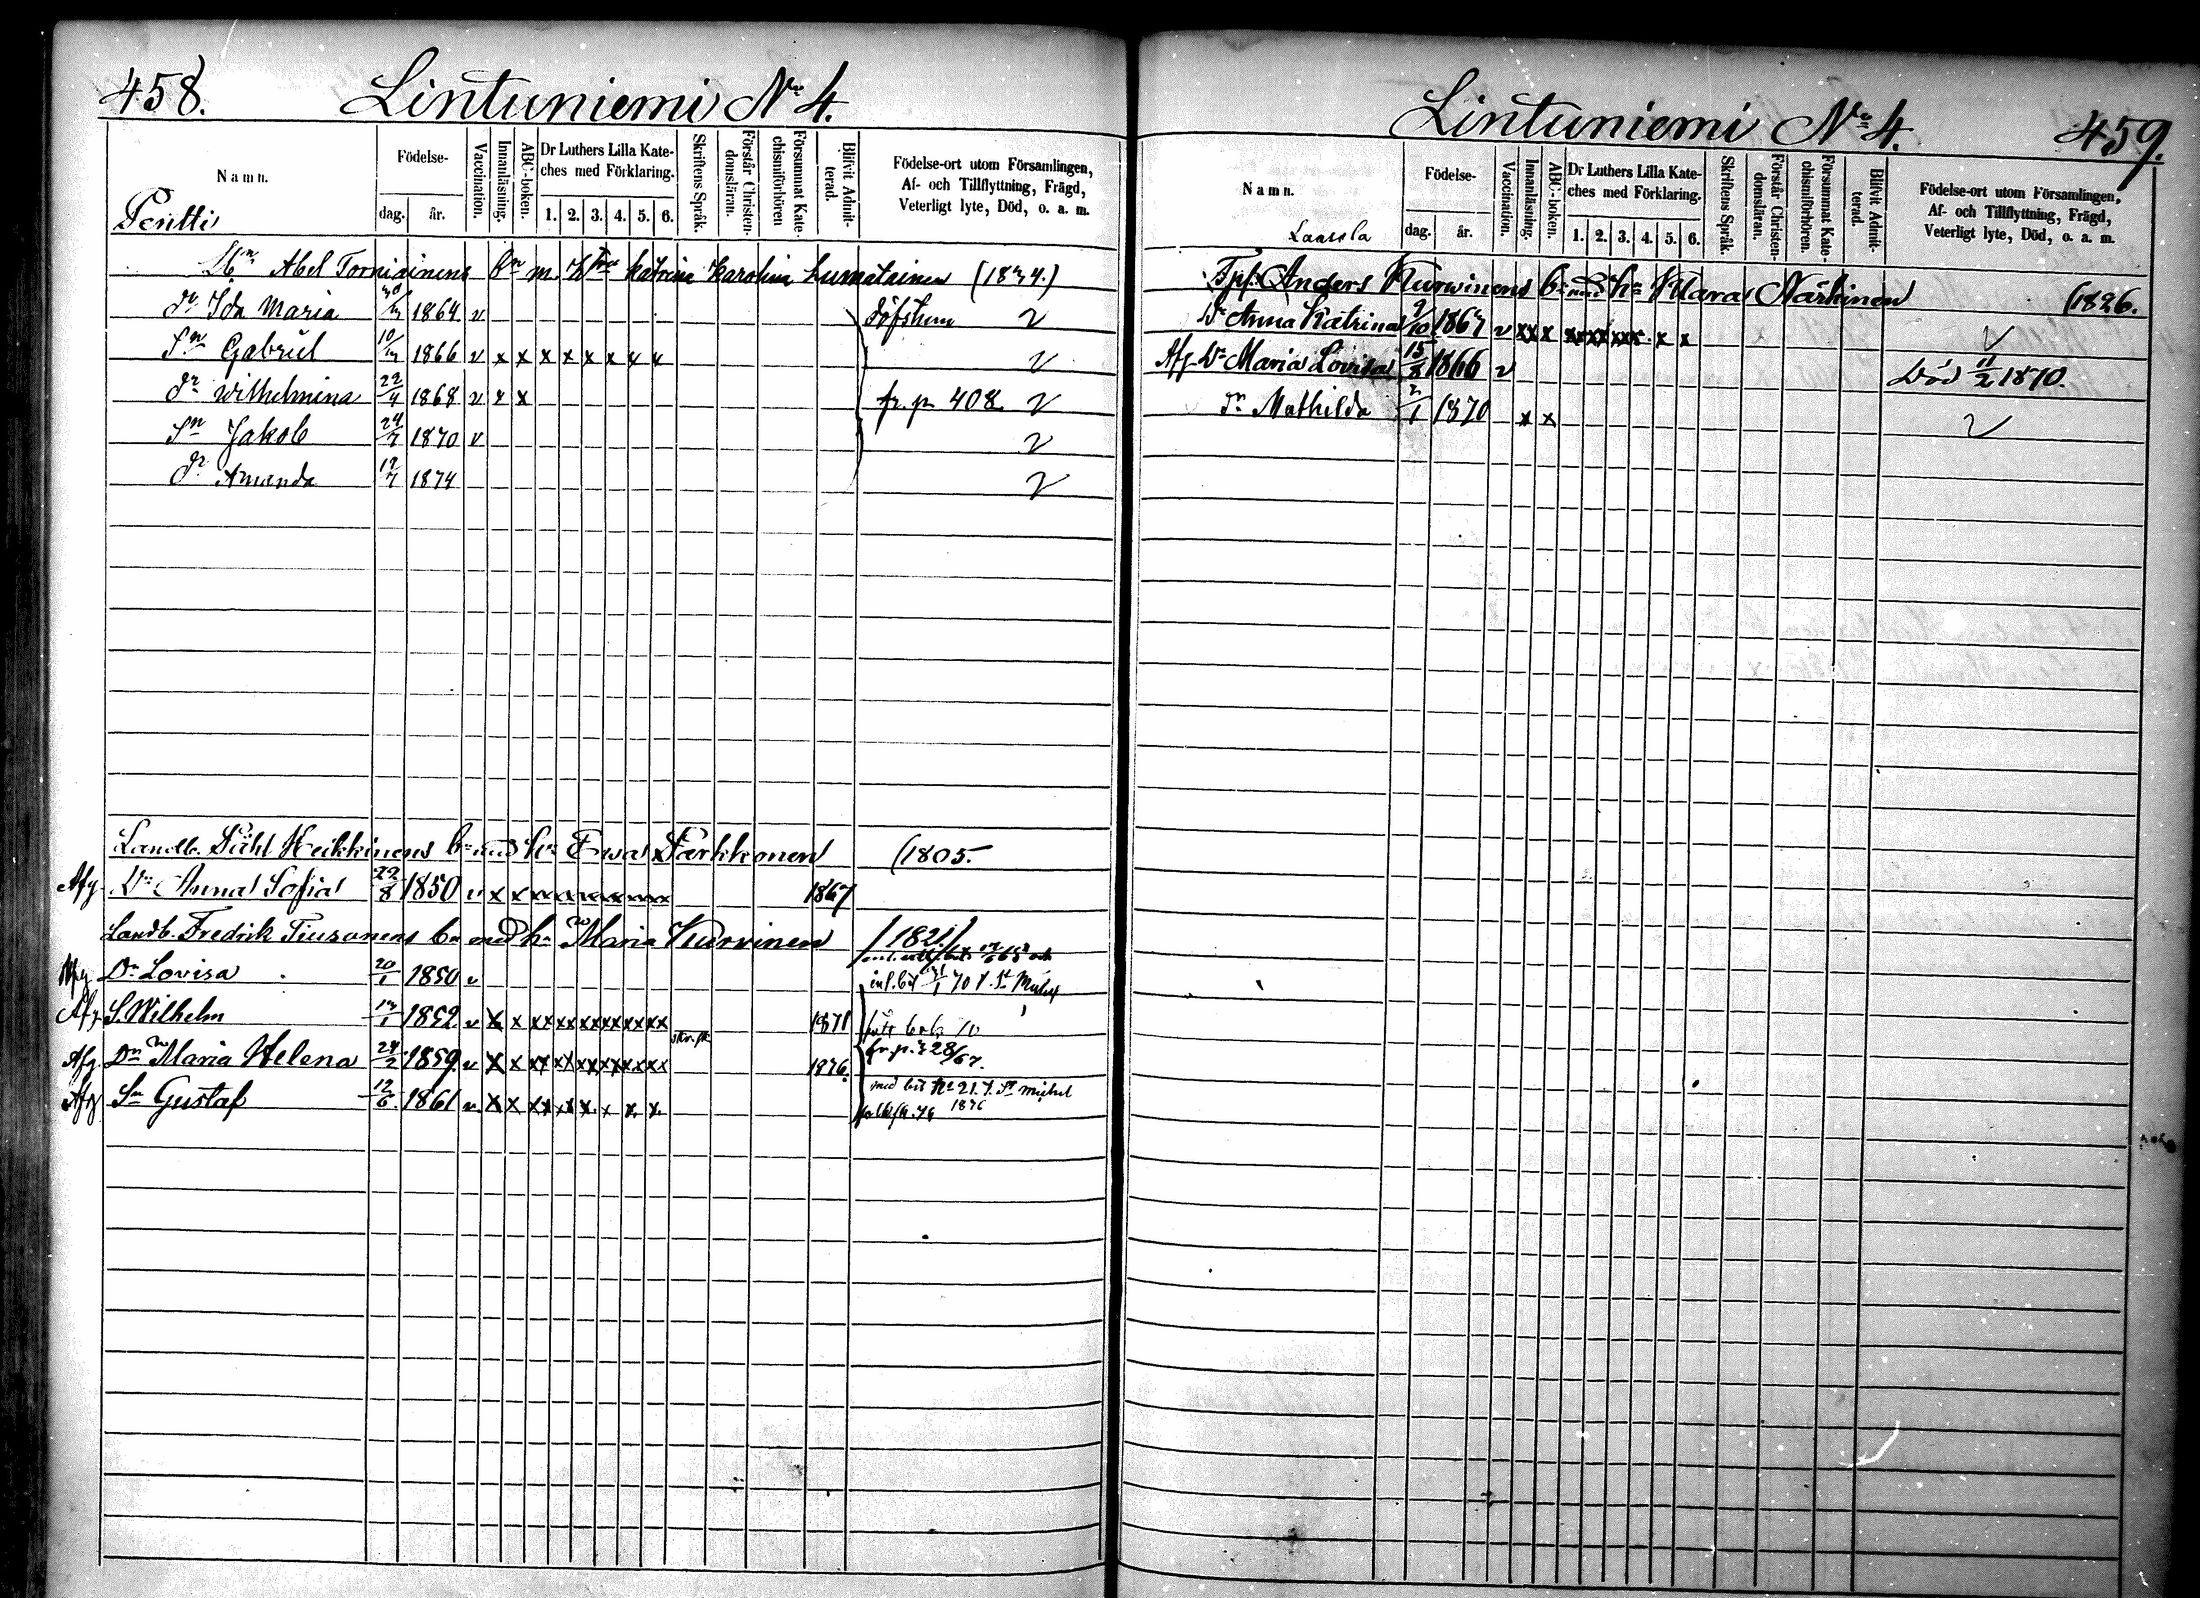 458. Lintuniemi No 4.
Namn.
Födelse-
dag. år.
Vaccination.
Innanläsning.
ABC-boken.
Dr Luthers Lilla Kate-
ches med Förklaring.
1. 2. 3. 4. 5. 6.
Skriftens Språk.
Förstår Christen-
domsläran.
Försummat Kate-
chismiförhören
Blifvit Admit-
terad.
Födelse-ort utom Församlingen,
Af- och Tillflyttning, Frägd,
Veterligt lyte, Död, o. a. m.
Pentti
Abel Torniainens Bn m. Katrina Karolina Lumatainen
Dr Ida Maria 1864 v v
Sn Gabriel 10 1866 v x x x x x x x x v
Dr Wilhelmina 22/4 1868 v x x fr. p. 408 v
Sn Jakob 24/7 1870 v v
Dr Amanda 12/7 1874 v
Landb. Påhl Heikkinens bn med hu Ewa Parkkonen (1805.
Afg. Dr Anna Sofia 22/8 1850 v x x x x x x x x 1867
Landb. Fredrik Tiusanens bn med hu Maria Kurvinen (1821)
Afg Dr Lovisa 20/1 1850 v
Afg S. Wilhelm 1852 v x x xx xx xx xx xx xx 1871
Afg. Dr Maria Helena 24/2 1859 v x x xx xx xx xx xx xx 1876.
fr. p. 328/67.
Afg Sn Gustaf 12/6 1861 v x x xx xx x x x x
med bet No 21. t. St Michel
1876
Lintuniemi No 4. 459.
Namn.
Födelse-
dag. år.
Vaccination.
Innanläsning.
ABC-boken.
Dr Luthers Lilla Kate-
ches med Förklaring.
1. 2. 3. 4. 5. 6.
Skriftens Språk.
Förstår Christen-
domsläran.
Försummat Kate-
chismiförhören.
Blifvit Admit-
terad.
Födelse-ort utom Församlingen,
Af- och Tillflyttning, Frägd,
Veterligt lyte, Död, o. a. m.
Tpf. Anders Kurwinens bn med hu Klara Närhinen (1826.
Dr Anna Katrina 9/10 1867 v xx x xx xx xx x x v
Afg Dr Maria Lovisa 15/8 1866 v Död 11/2 1870.
Dr Mathilda 2/1 1870 x x v